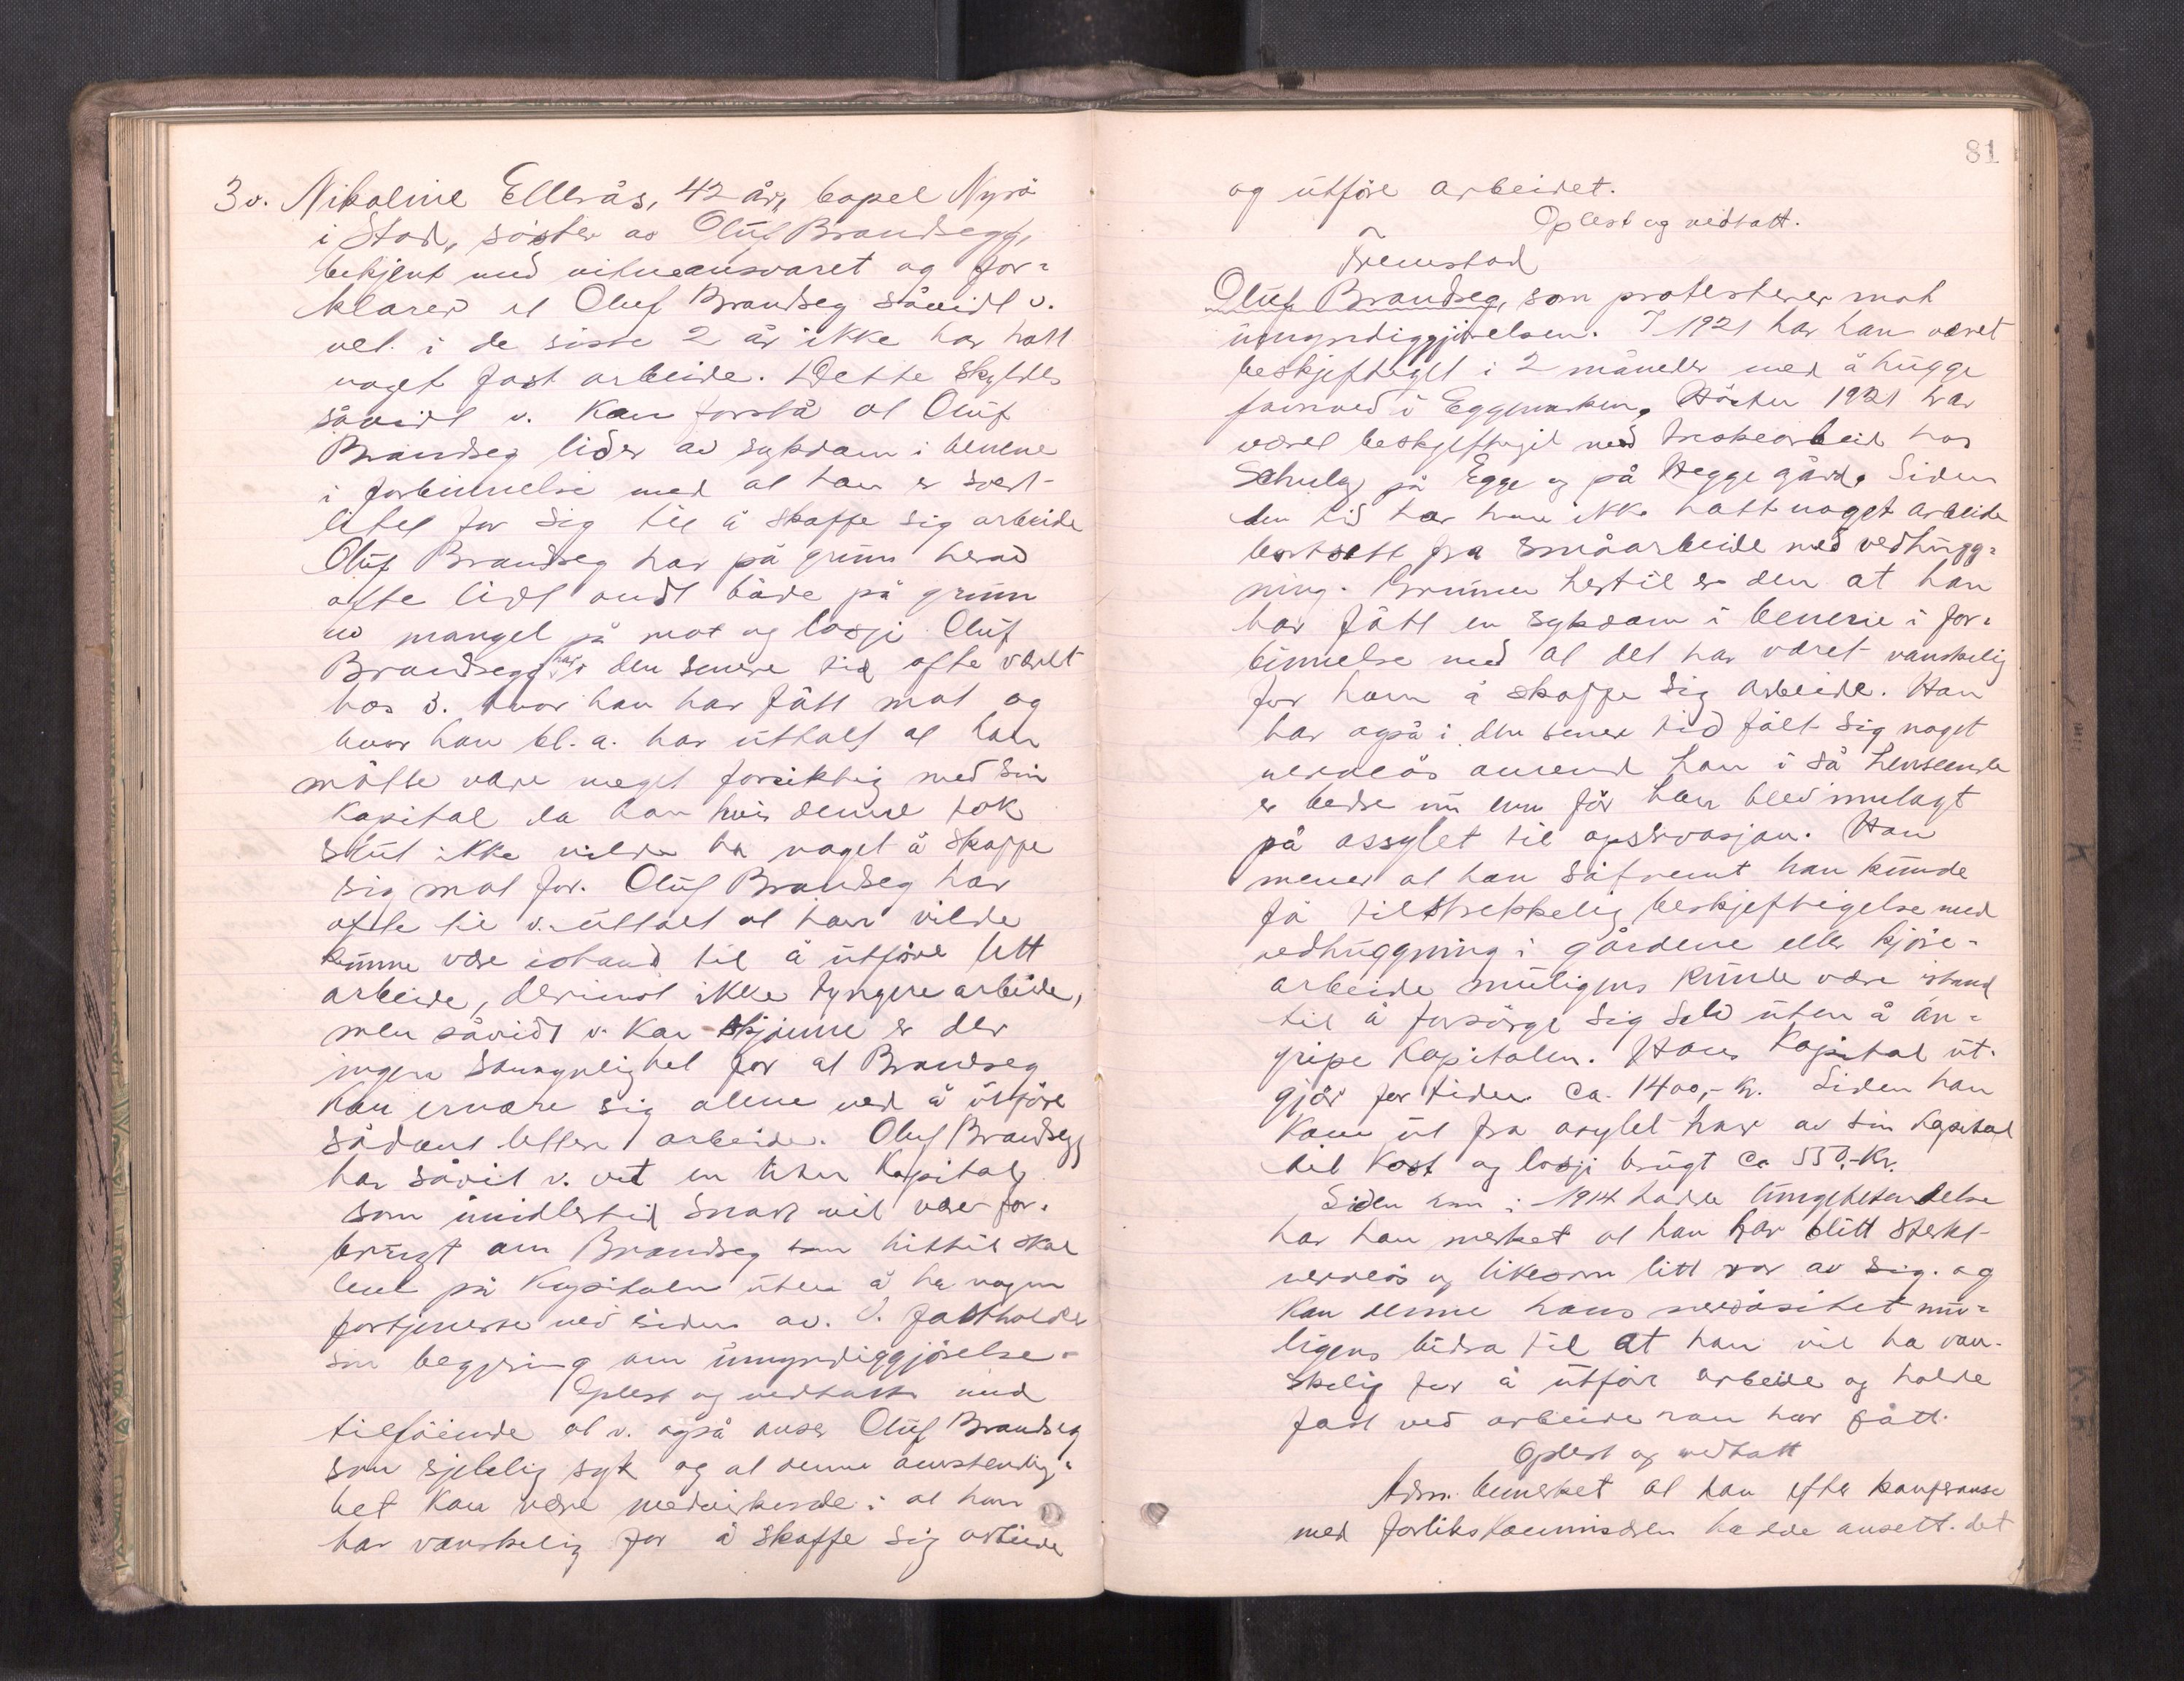 3 v. Nikoline Ellerås, 42 år, bopel Nyrö
i Stod, söster av Oluf Brandsegg,
bekjent med vitneansvaret og for-
klarer at Oluf Brandseg såvidt v.
vet i de siste 2 år ikke har hatt
noget fast arbeide. Dette skyldes
såvidt v. kan forstå at Oluf
Brandseg lider av sykdom i benene
i forbinnelse med at han er svært
litet for sig til å skaffe sig arbeide
Oluf Brandseg har på grunn herav
ofte lidt ondt både på grunn
av mangel på mat og losji. Oluf
Brandsegg har i den senere tid ofte været
hos v. hvor han har fått mat og
hvor han bl. a. har uttalt at han
måtte være meget forsiktig med sin
kapital da han hvis denne tok
slut ikke vilde ha noget å skaffe
sig mat for. Oluf Brandseg har
ofte til v. uttalt at han vilde
kunne være istand til å utföre lett
arbeide, derimot ikke tyngere arbeide,
men såvidt v. kan skjönne er der
ingen sannynlighet for at Brandseg
kan ernære sig alene ved å utföre
sådant lettere arbeide. Oluf Brandsegg
har såvit v. vet en liten kapital
som imidlertid snart vil være for-
brugt om Brandseg som hittil skal
leve på kapitalen uten å ha nogen
fortjeneste ved siden av. V. fastholder
sin begjering om umyndiggjörelse.
Oplest og vedtatt med
tilföiende at v. også anser Oluf Brandseg
som sjelelig syk og at denne omstendig-
het kan være medvirkende i at han
har vanskelig for å skaffe sig arbeide
81
og utföre arbeidet.
Oplest og vedtatt.
Fremstod
Oluf Brandseg, som protesterer mot
umyndiggjörelsen. I 1921 har han været
beskjeftiget i 2 måneder med å hugge
favnved i Eggemarken. Hösten 1921 har
været beskjeftiget med treskearbeid hos
Schulz på Egge og på Hegge gård. Siden
den tid har han ikke hatt noget arbeide
bortsett fra småarbeide med vedhugg-
ning. Grunnen hertil er den at han
har fått en sykdom i benene i for-
binnelse med at det har været vanskelig
for ham å skaffe sig arbeide. Han
har også i den senere tid fölt sig noget
nervös ansend han i så henseende
er bedre nu enn för han blev innlagt
på assylet til opservasjon. Han
mener at han såfremt han kunde
få tilstrekkelig beskjeftigelse med
vedhuggning i gårdene eller kjöre-
arbeide muligens kunde være istand
til å forsörge sig selv uten å an-
gripe kapitalen. Hans kapital ut-
gjör for tiden ca. 1400,- kr. Siden han
kom ut fra asylet har av sin kapital
til kost og losji brugt ca 550,- kr.
Siden han i 1914 hadde lungebetendelse
har han merket at han har blitt sterkt
nervös og likesom litt var av sig. og
kan denne hans nervösitet mu-
ligens bidra til at han vil ha van-
skelig for å utföre arbeide og holde
fast ved arbeide han har fått.
Oplest og vedtatt
Adm. bemerket at han efter konferanse
med forlikskommisæren hadde ansett det